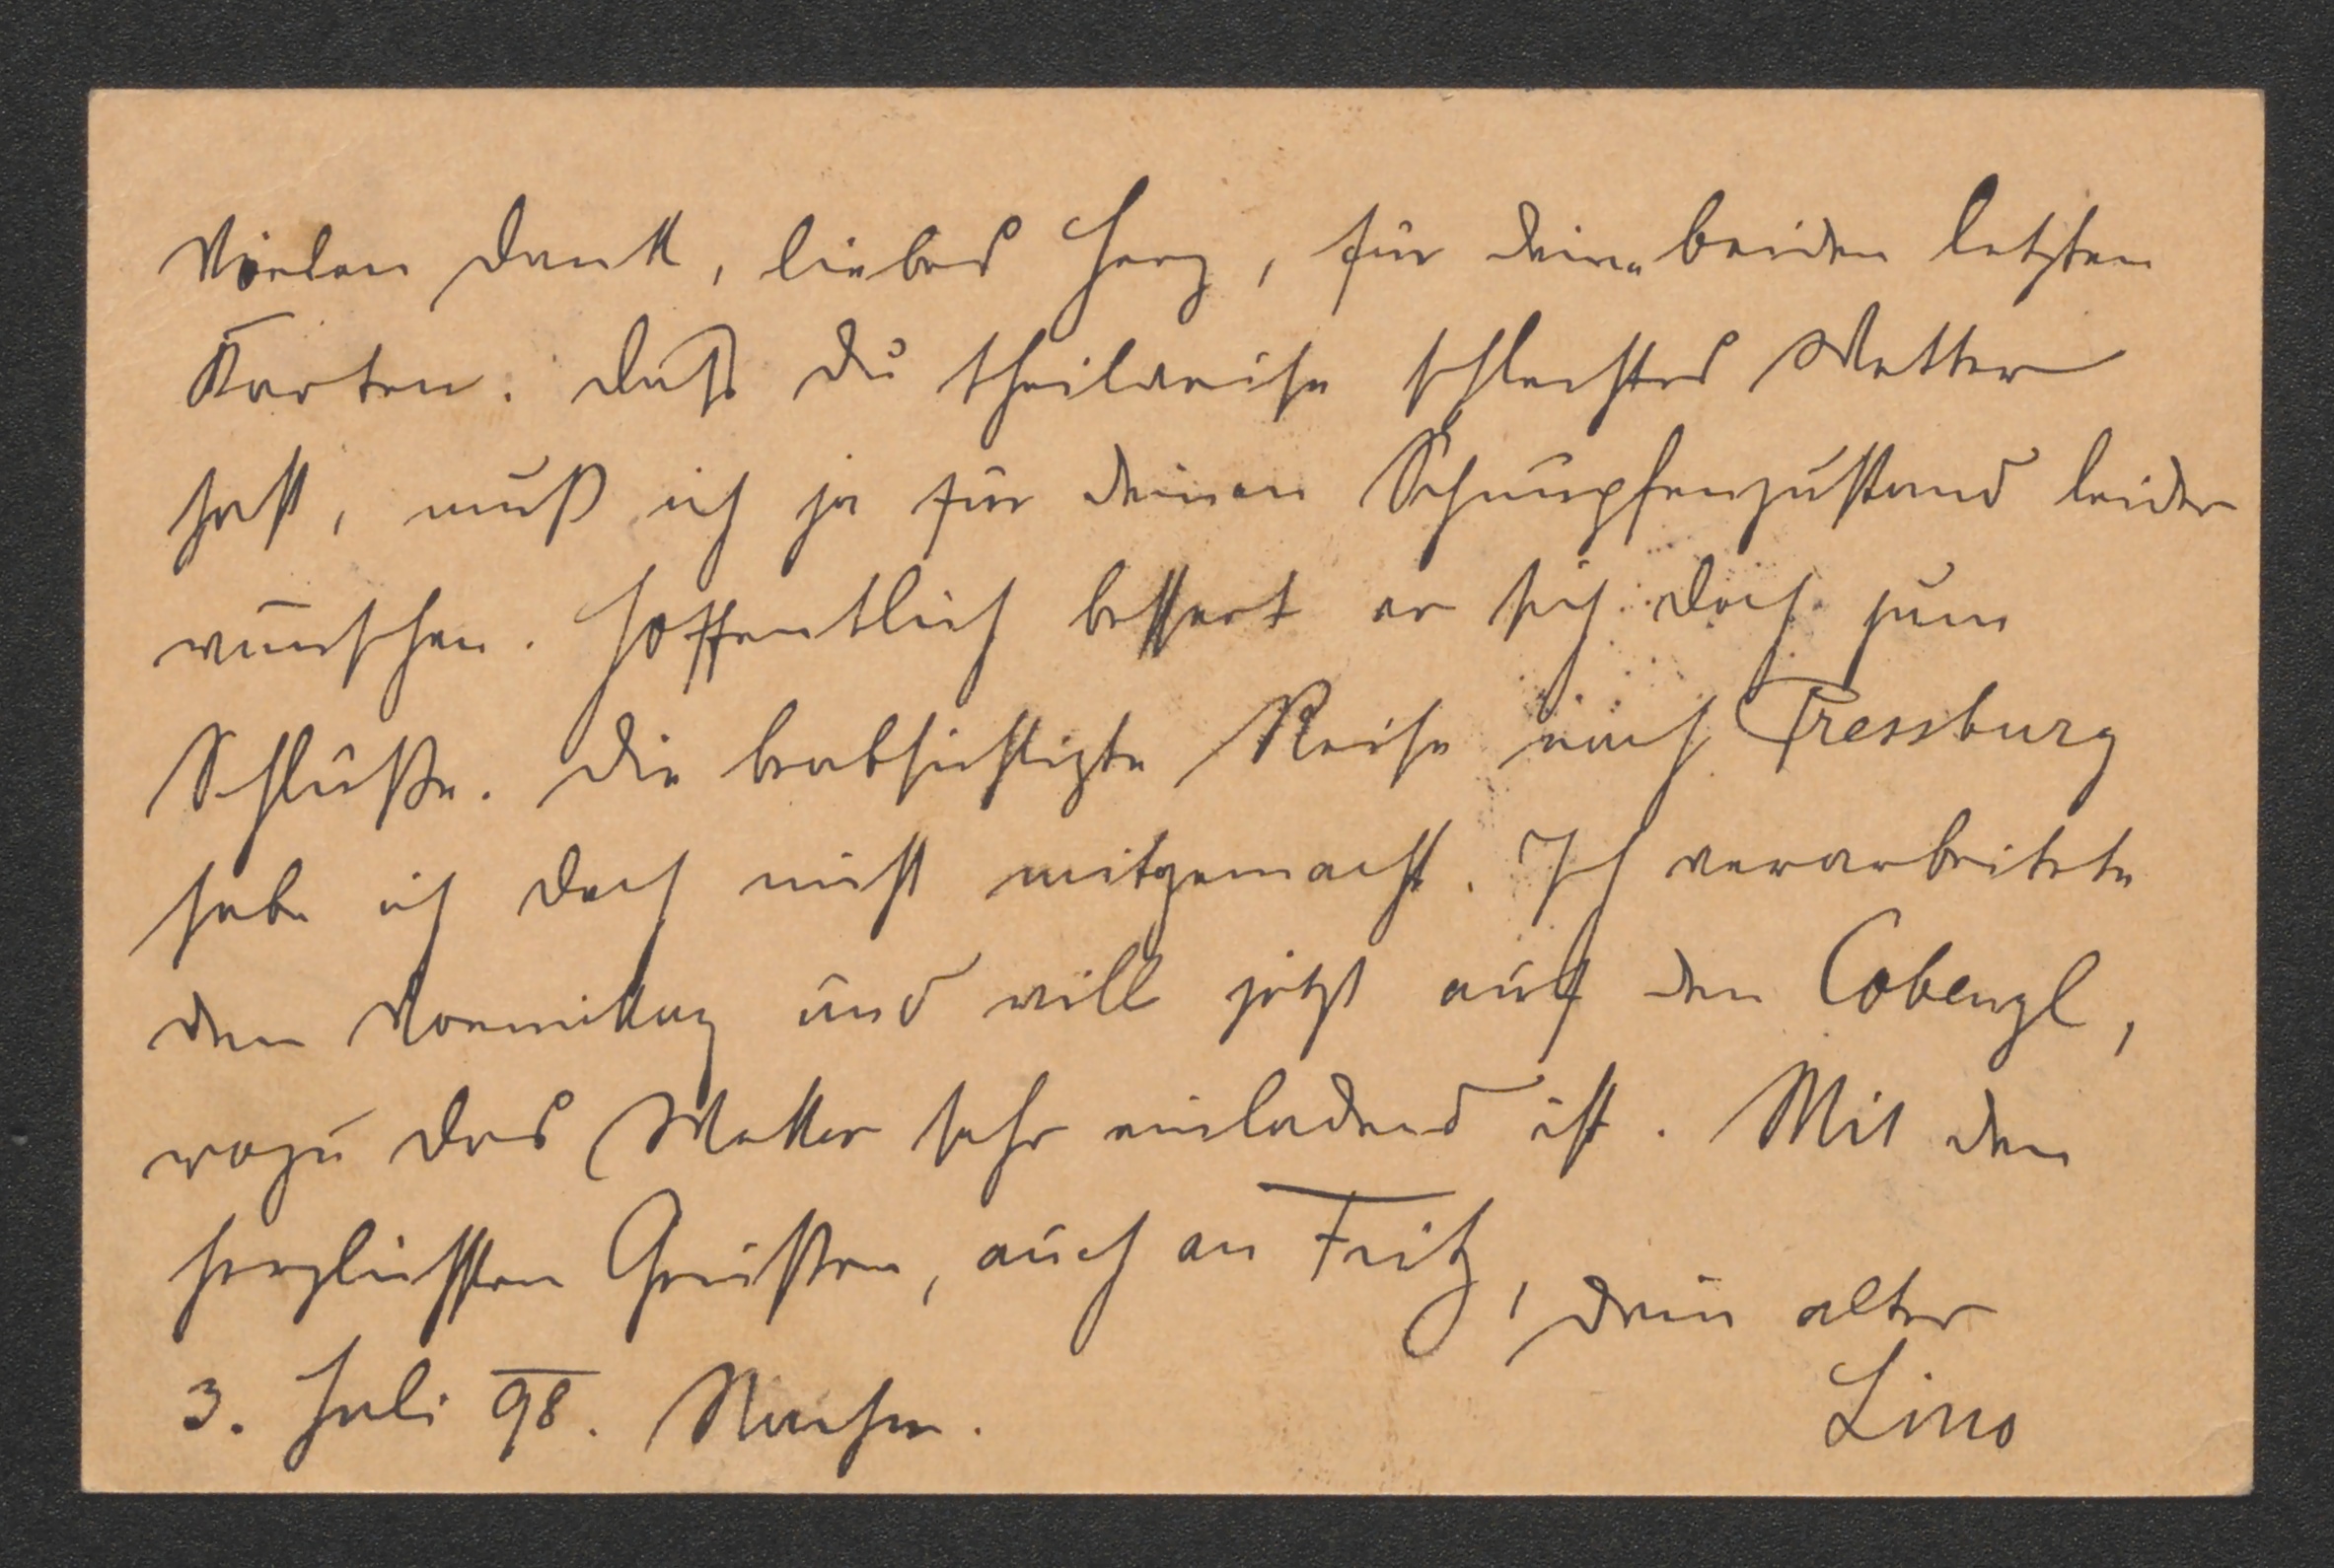 Vielen Dank, liebes Herz, für deine beiden letzten
Karten. Daß du theilweise schlechtes Wetter
hast, muß ich ja für deinen Schnupfenzustand leider
wünschen. Hoffentlich bessert er sich doch zum
Schluße. Die beabsichtigte Reise nach Pressburg
habe ich doch nicht mitgemacht. Ich verarbeitete
den Vormittag und will jetzt auf den Cobenzl,
wozu das Wetter sehr einladend ist. Mit den
herzlichsten Grüßen, auch an Fritz, dein alter
3. Juli 98. Nachm. Lino